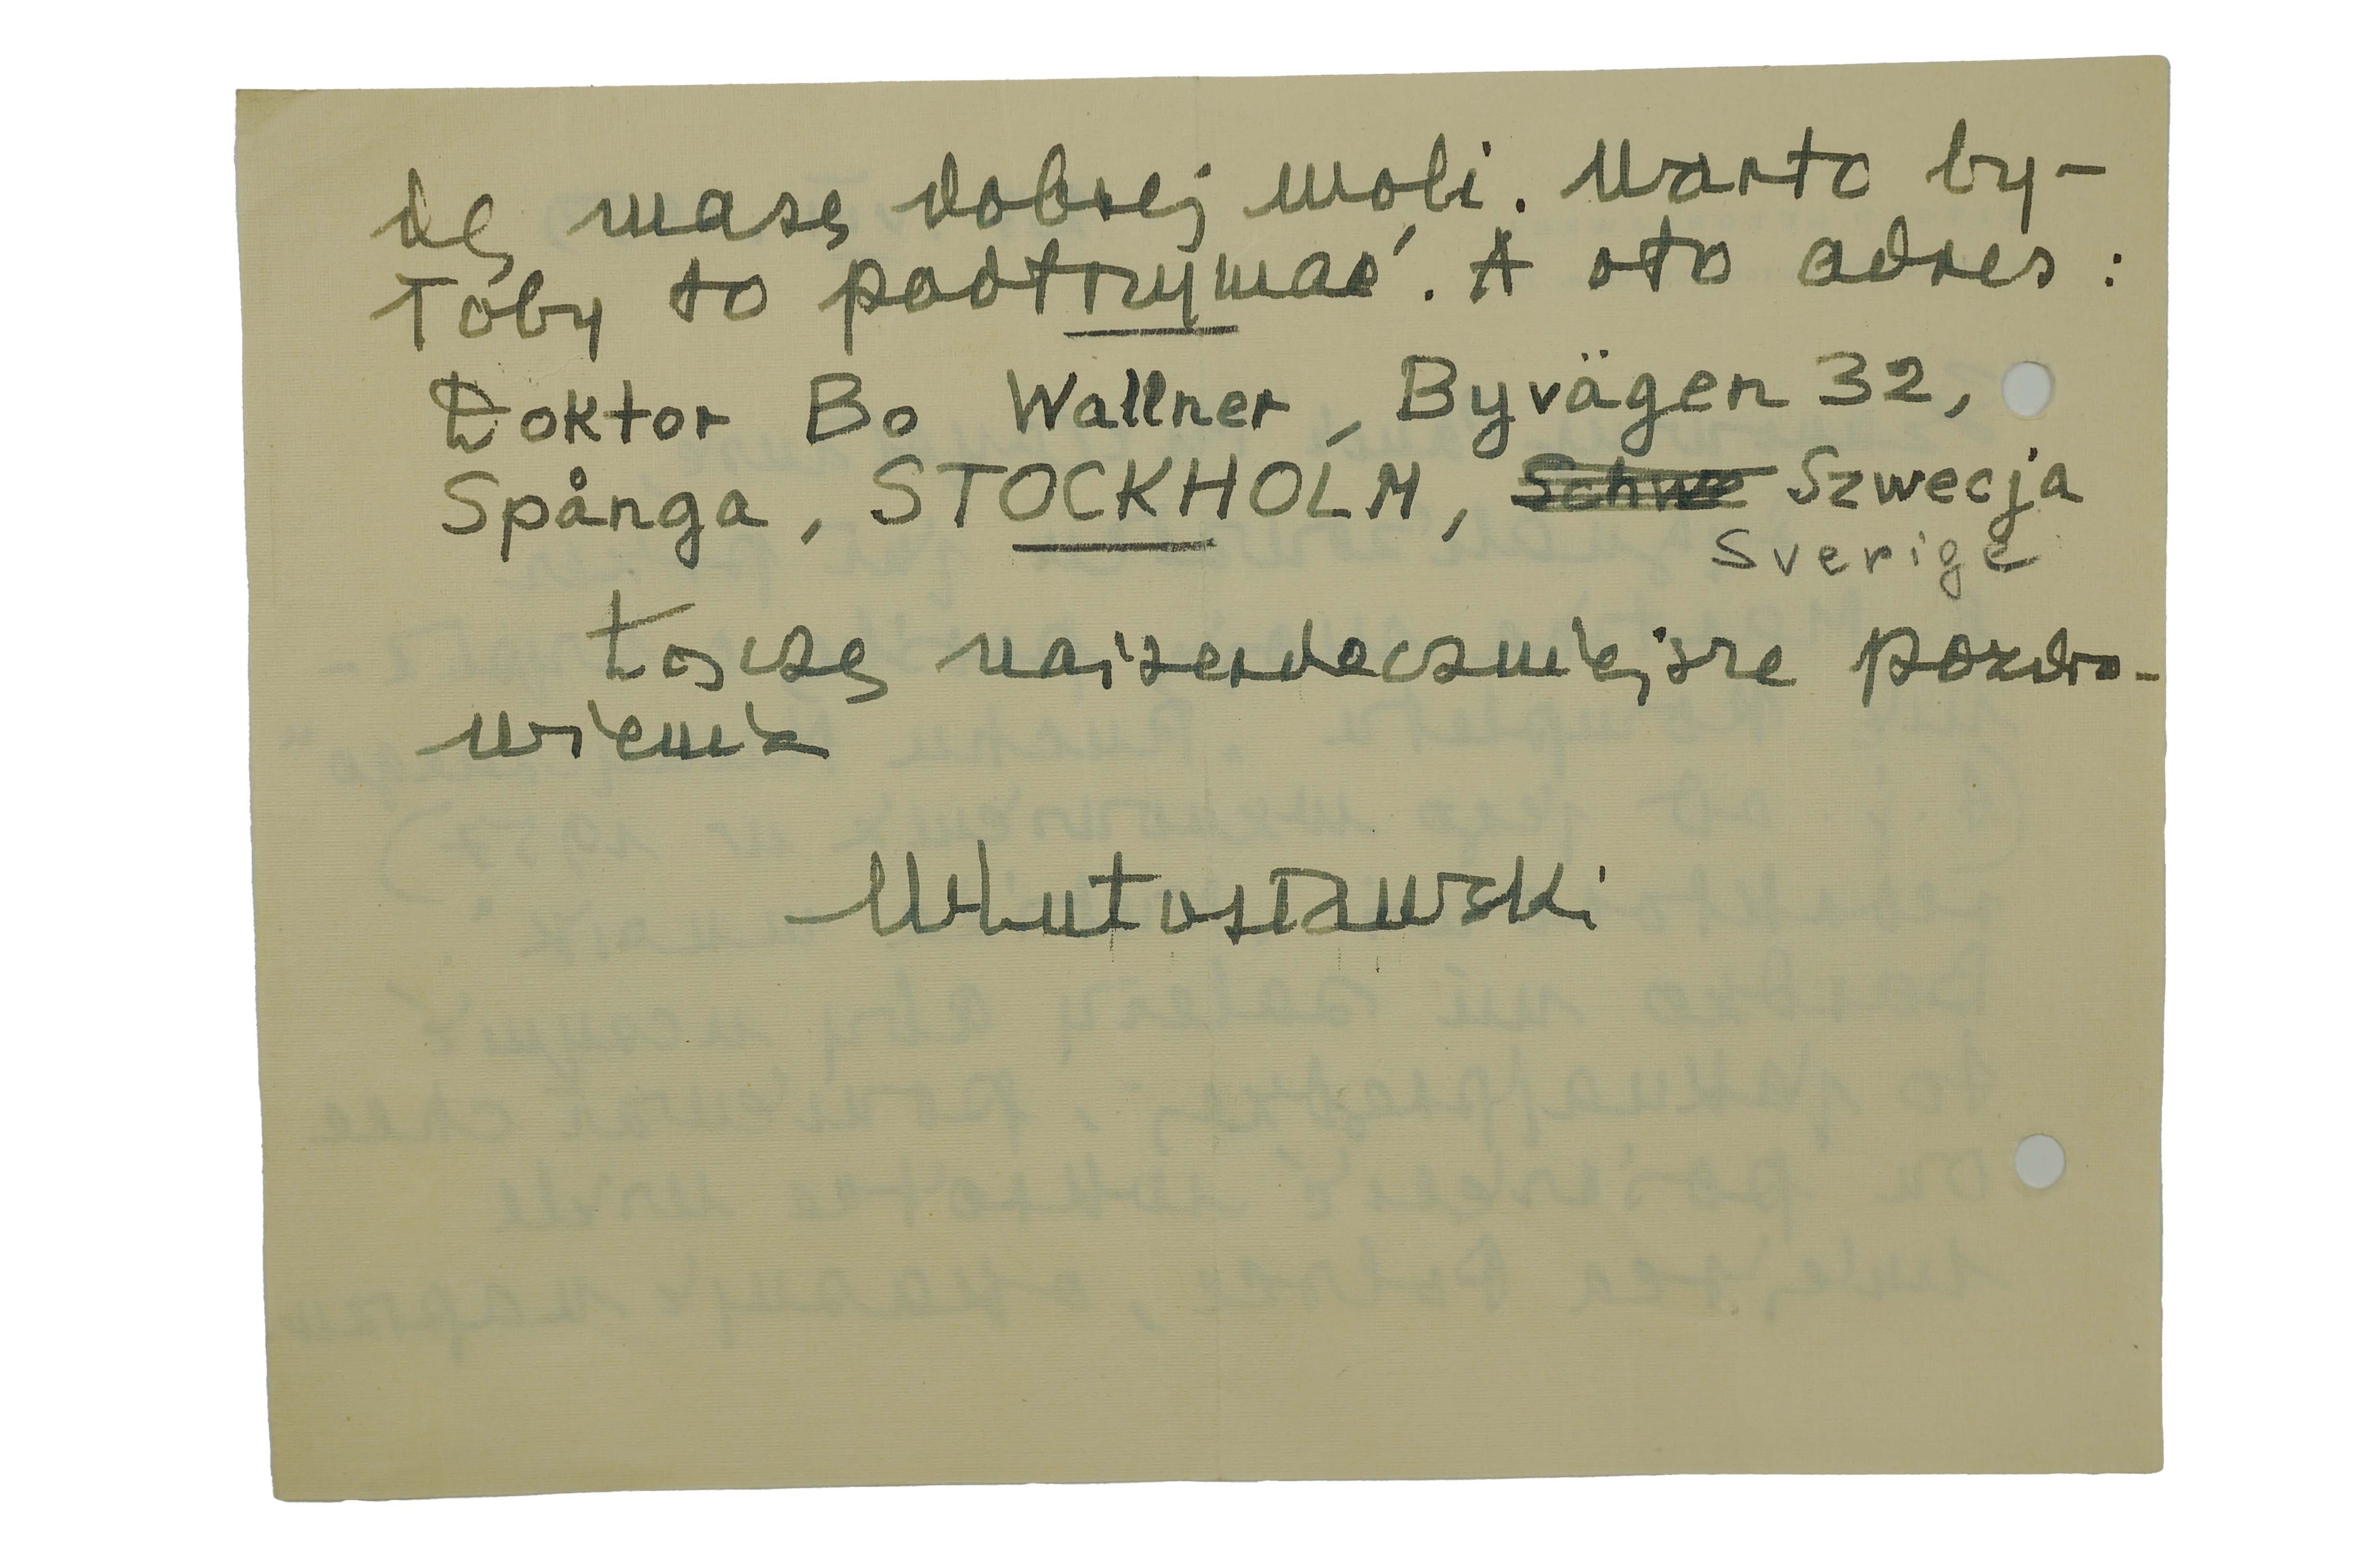 dę masę dobrej woli. Warto by-
łoby to podtrzymać. A oto adres:
Doktor Bo Wallner, Byvägen 32,
Spånga, STOCKHOLM, Schwe Szwecja
Sverige
Łączę najserdeczniejsze pozdro-
wienia
WLutosławski